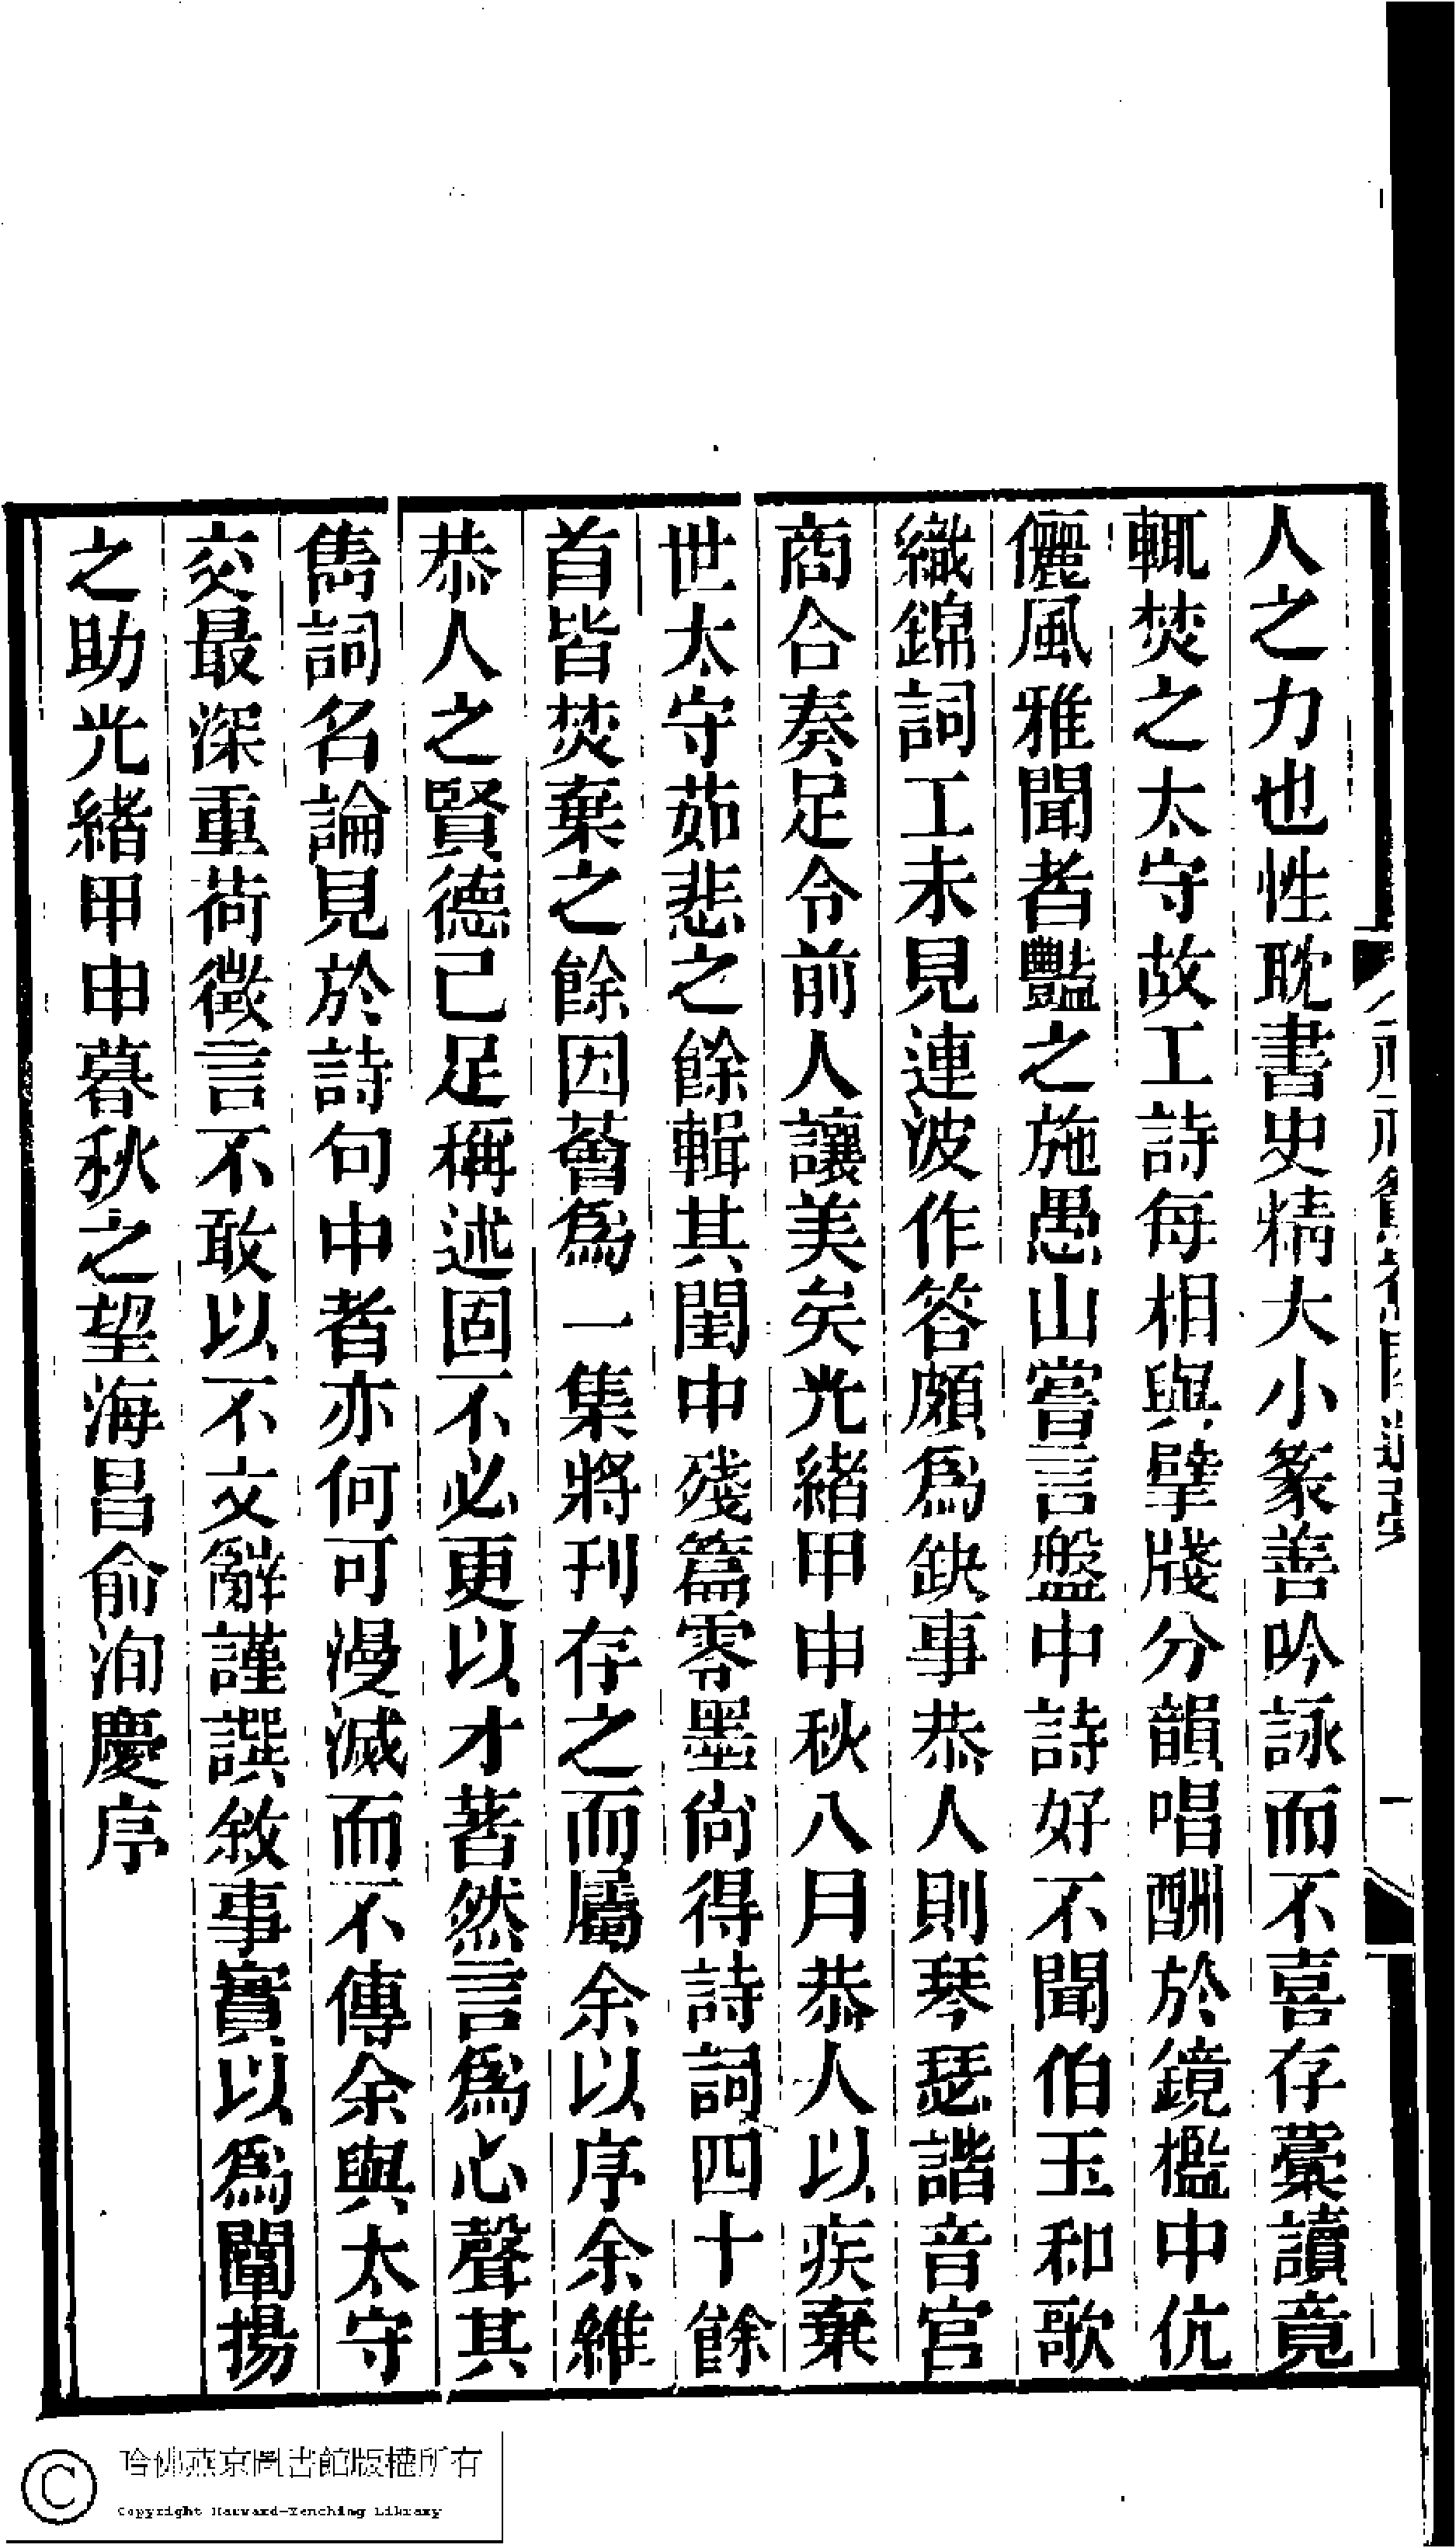 人之力也性耽書史精大小篆善吟詠而不喜存藁讀竟
輒焚之太守故工詩每相與擘牋分韻唱酬於鏡檻中伉
儷風雅聞者豔之施愚山嘗言盤中詩好不聞伯玉和歌
織錦詞工未見連波作答頗爲缺事恭人則琴瑟諧音宮
商合奏足令前人讓美矣光緒甲申秋八月恭人以疾棄
世太守茹悲之餘輯其閨中殘篇零墨尙得詩詞四十餘
首皆焚棄之餘因薈爲一集將刊存之而屬余以序余維
恭人之賢德已足稱述固不必更以才著然言爲心聲其
雋詞名論見於詩句中者亦何可漫滅而不傳余與太守
交最深重荷徵言不敢以不文辭謹譔敘事實以爲闡揚
之助光緒甲申暮秋之望海昌俞洵慶序
一
哈佛燕京圖書館版權所有
Copyright Harvard-Yenching Library